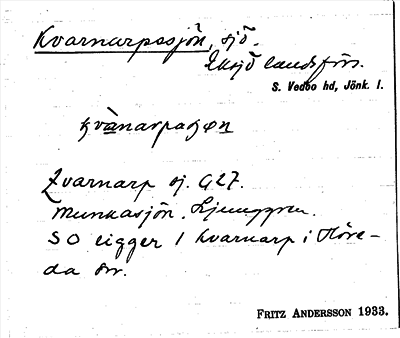 Kvarnarpasjön, sjö.
Eksjö landsförs.
S. Vedbo hd, Jönk. l.
kvànarpaʃøn
Kvarnarp sj. G27.
Munkasjön. Ljunggren.
SO ligger i Kvarnarp i Höre-
da sn.
FRITZ ANDERSSON 1933.